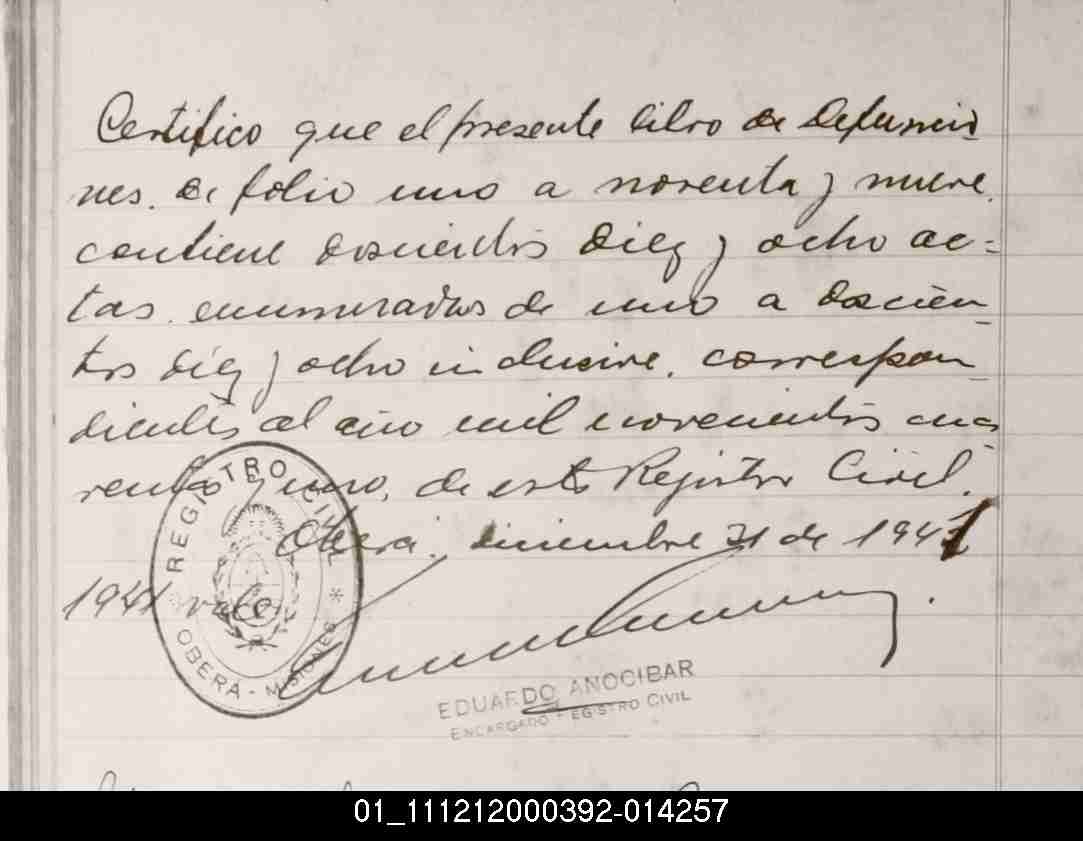 Certifico que el presente libro de Defuncio
nes. de folio uno a noventa y nueve
contiene doscientos diez y ocho ac=
tas enumeradas de uno a doscien-
tos diez y ocho inclusive. correspon-
dientes al año mil novecientos cua
renta y uno, de este Registro Civil.
Oberá, diciembre 31 de 1941
1941 vale
REGISTRO CIVIL
* OBERÁ - MISIONES *
EDUARDO ANOCIBAR
ENCARGADO REGISTRO CIVIL
01_111212000392-014257